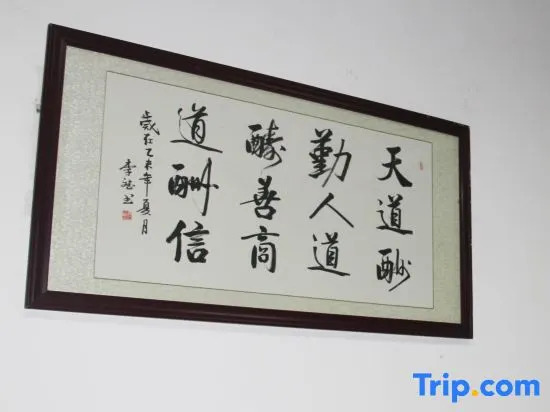 天道酬
勤人道
醻善商
道酬信
歲在乙未年夏月
李书
Trip.com